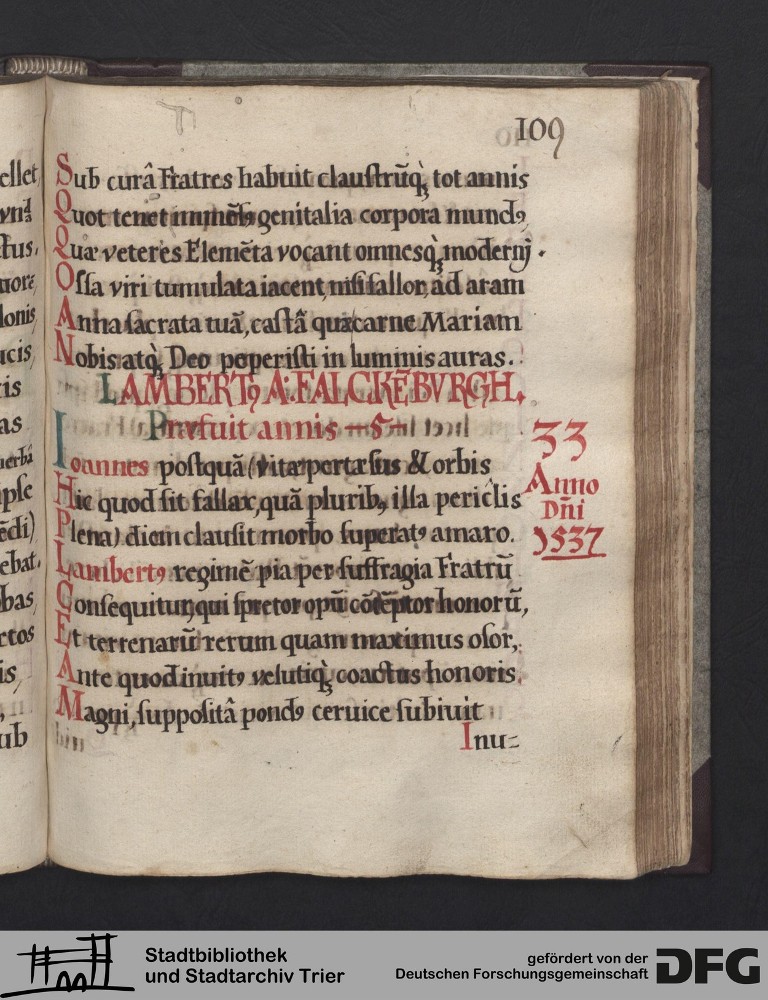 109
Sub curâ Fratres habuit claustrūq̀ꝫ tot annis
Quot tenet immēsꝯ genitalia corpora mundꝯ,
Quæ veteres Elemēta vocant omnesq̀ꝫ modernj.
Ossa viri tumulata iacent, nisi fallor, ad aram
Anna sacrata tuā, castā quæ carne Mariam
Nobis atq̀ꝫ Deo peperisti in luminis auras.
LAMBERTꝯ A: FALCKĒBVRGH.
Præfuit annis —5—
33
Anno
Dn̄i
1537
Ioannes postquā (vitæ pertæsus & orbis
Hic quod sit fallax, quā pluribꝫ illa periclis
Plena) diem clausit morbo superatꝯ amaro.
Lambertꝯ regimē pia per suffragia Fratrū
Consequitur, qui spretor opū cōtēptor honorū,
Et terrenarū rerum quam maximus osor,
Ante quod inuitꝯ velutiq̀ꝫ coactus honoris
Magni, suppositâ pondꝯ ceruice subiuit
Inu=
ellet
tus.
uore,
lonis,
ucis,
is
as
uerbā
ipse
ēdi)
ebat.
bas,
ctos
is,
ub
Stadtbibliothek
und Stadtarchiv Trier
gefördert von der
Deutschen Forschungsgemeinschaft
DFG